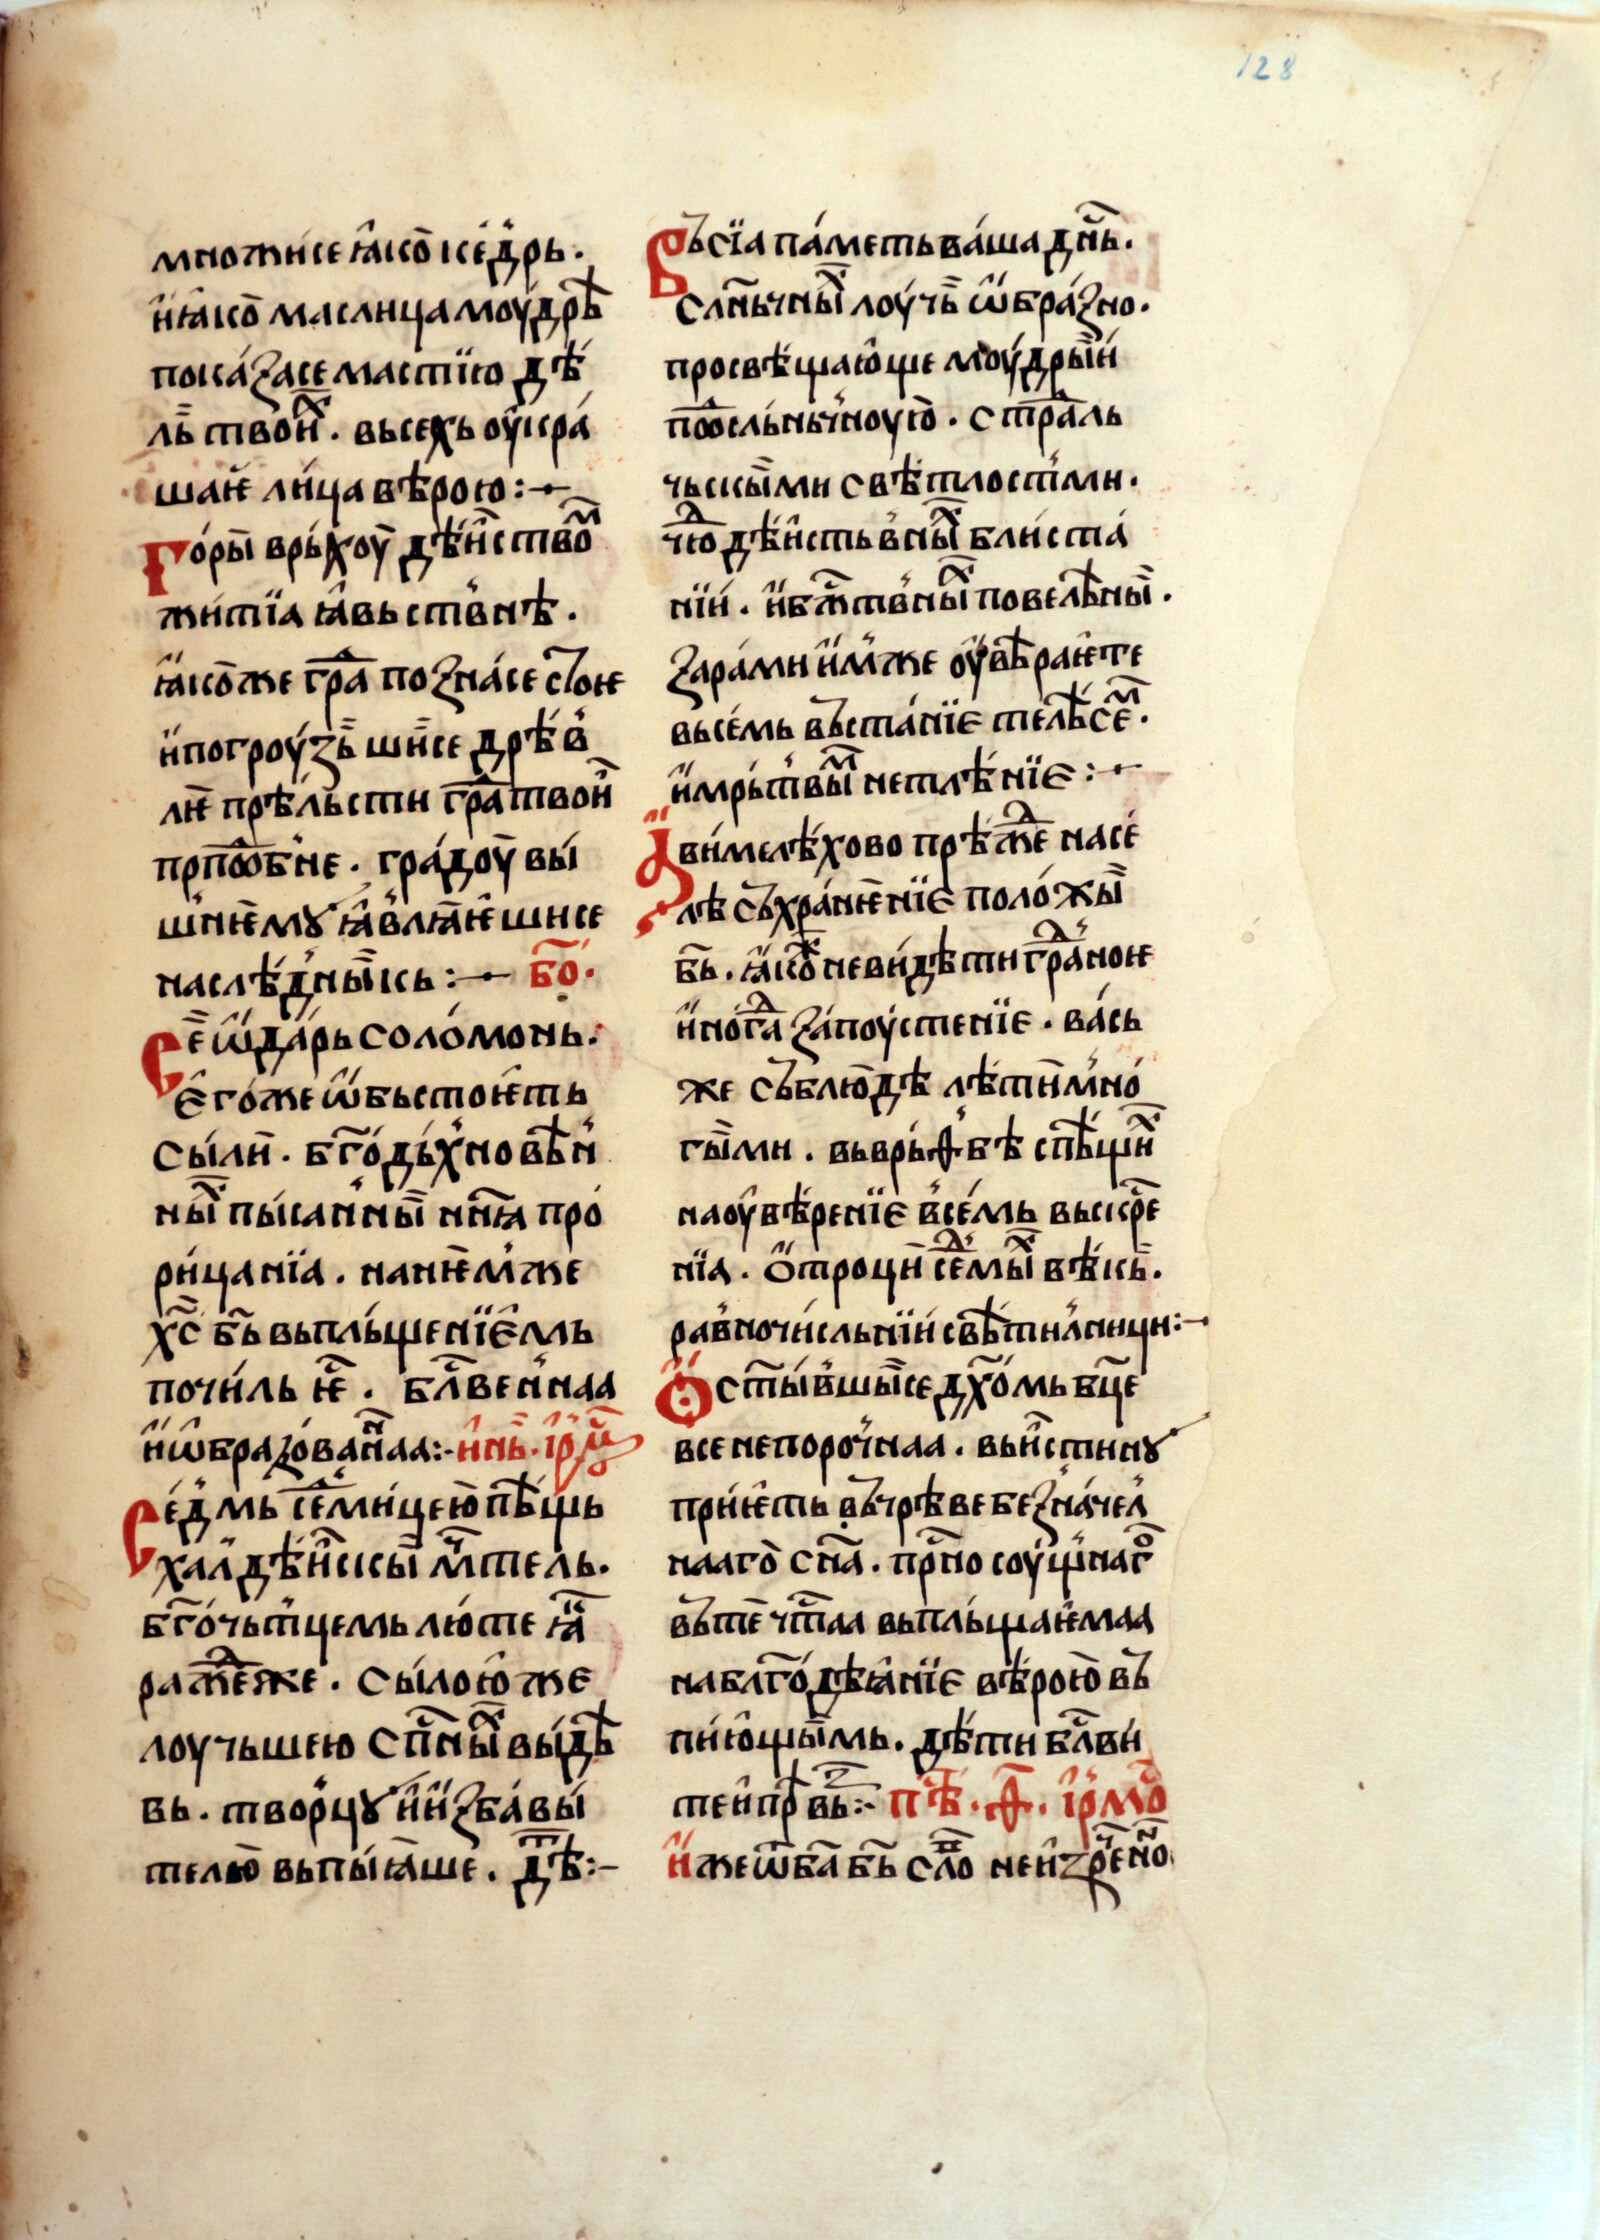 128
множи́се ꙗ҆ко̀ ке́дрь ·
и҆ꙗ҆ко̀ маслица моу́дрѣ
пока́засе мастїю дѣ́
ль̀ твои́ⷯ · вьсехь оу҆кра́
шаѥ ли́ца вѣрою :~
Го́ры врьхоу̀ дѣи҆ствоⷨ
жи́тїа ꙗ҆вьствнѣ ·
ꙗ҆ко̀же граⷣ позна́се ст҃оѥ
и҆погроузь̀ шїисе дрѣв
лѥ прѣльсти граⷣ твои́
прпⷣобне · гра́доу вы́
шнѥмꙋ ꙗ҆влꙗѥ шисе
наслѣдныкь :~ бо҃ ·
Сѐ ѡ҆да́рь соло́монь ·
є҆го́же ѡ҆бьстоѥть
сы́ли · бг҃о́дьхновѣн
ныⷯ пы́санны ннꙗ про́
ри́цанїа · нанѥмже
хс҃ бь҃ вьпльщенїємь
почи́ль ѥ҃ · бл҃веннаа
и҆ѡ҆бразо́ваннаа :- и҆нь · і҆рⷨ
Се́дмь се́мицею пѣщь
халдѣи҆скы мч҃тель ·
бг҃о́чьтцемь лю́те ꙗ҆
раже́же · сы́лою же
лоучьшею сп҃сныⷯ вы́дѣ
вь · тво́рцꙋ и҆ и҆зба́вы
телю̀ вьпы́ꙗше · дѣⷮ :~
Въсїа па́меть ва́ша дн҃ь ·
слн҃ьчныⷯ лоу́чь̀ ѡ҆бра́зно ·
просвѣ́щаю҆ще моу́дрыи
поⷣсльньчноую̀ · страⷣль
чьскы́ми свѣтлостми ·
чюⷣ дѣи҆ствныⷯ блиста́
нїи · и҆бж҃твныⷯ повелѣны ·
зара́ми и҆мже оу҆вѣраѥте
вьсе́мь въста́нїє телѣсеⷨ ·
и҆мрьтвыⷨ нетлѣнїє :~
А҆ви́мелѣхово прѣжⷣе насе
лѣ съхра́нѥнїє поло́жы
бь҃ · ꙗ҆коⷤ неви́дѣти граⷣноѥ
и҆ногⷣа запоу́стенїє · ва́сь
же съблю́дѣ лѣтѥмно́
гы́ми · вьврьтѣ спѣщиⷯ
наоу҆вѣренїє все́мь вьскр҃е
нїа · ѻ҆троци се́ⷣмыⷯ вѣкь ·
равночи́сльнїи свѣтилници :~
Ѻ҆ст҃ы́вшысе дх҃о́мь бц҃е
все непоро́чнаа · вьи́стинꙋ
прїи́ѥть въчрѣве безна́чел
нааго̀ сн҃а · пр҃но соущнагⷪ
въте чт҃аа вьпльщаѥмаа
на бл҃го́дѣꙗнїє вѣрою въ
пїющы́мь · дѣти бл҃ви
теи҆прⷣ въⷥ :~ пѣⷭ · ѳ҃ · і҆рмоⷭ
И҆же ѿба҃ бь҃ сло҃ неи҆зре́ⷱноⷩ